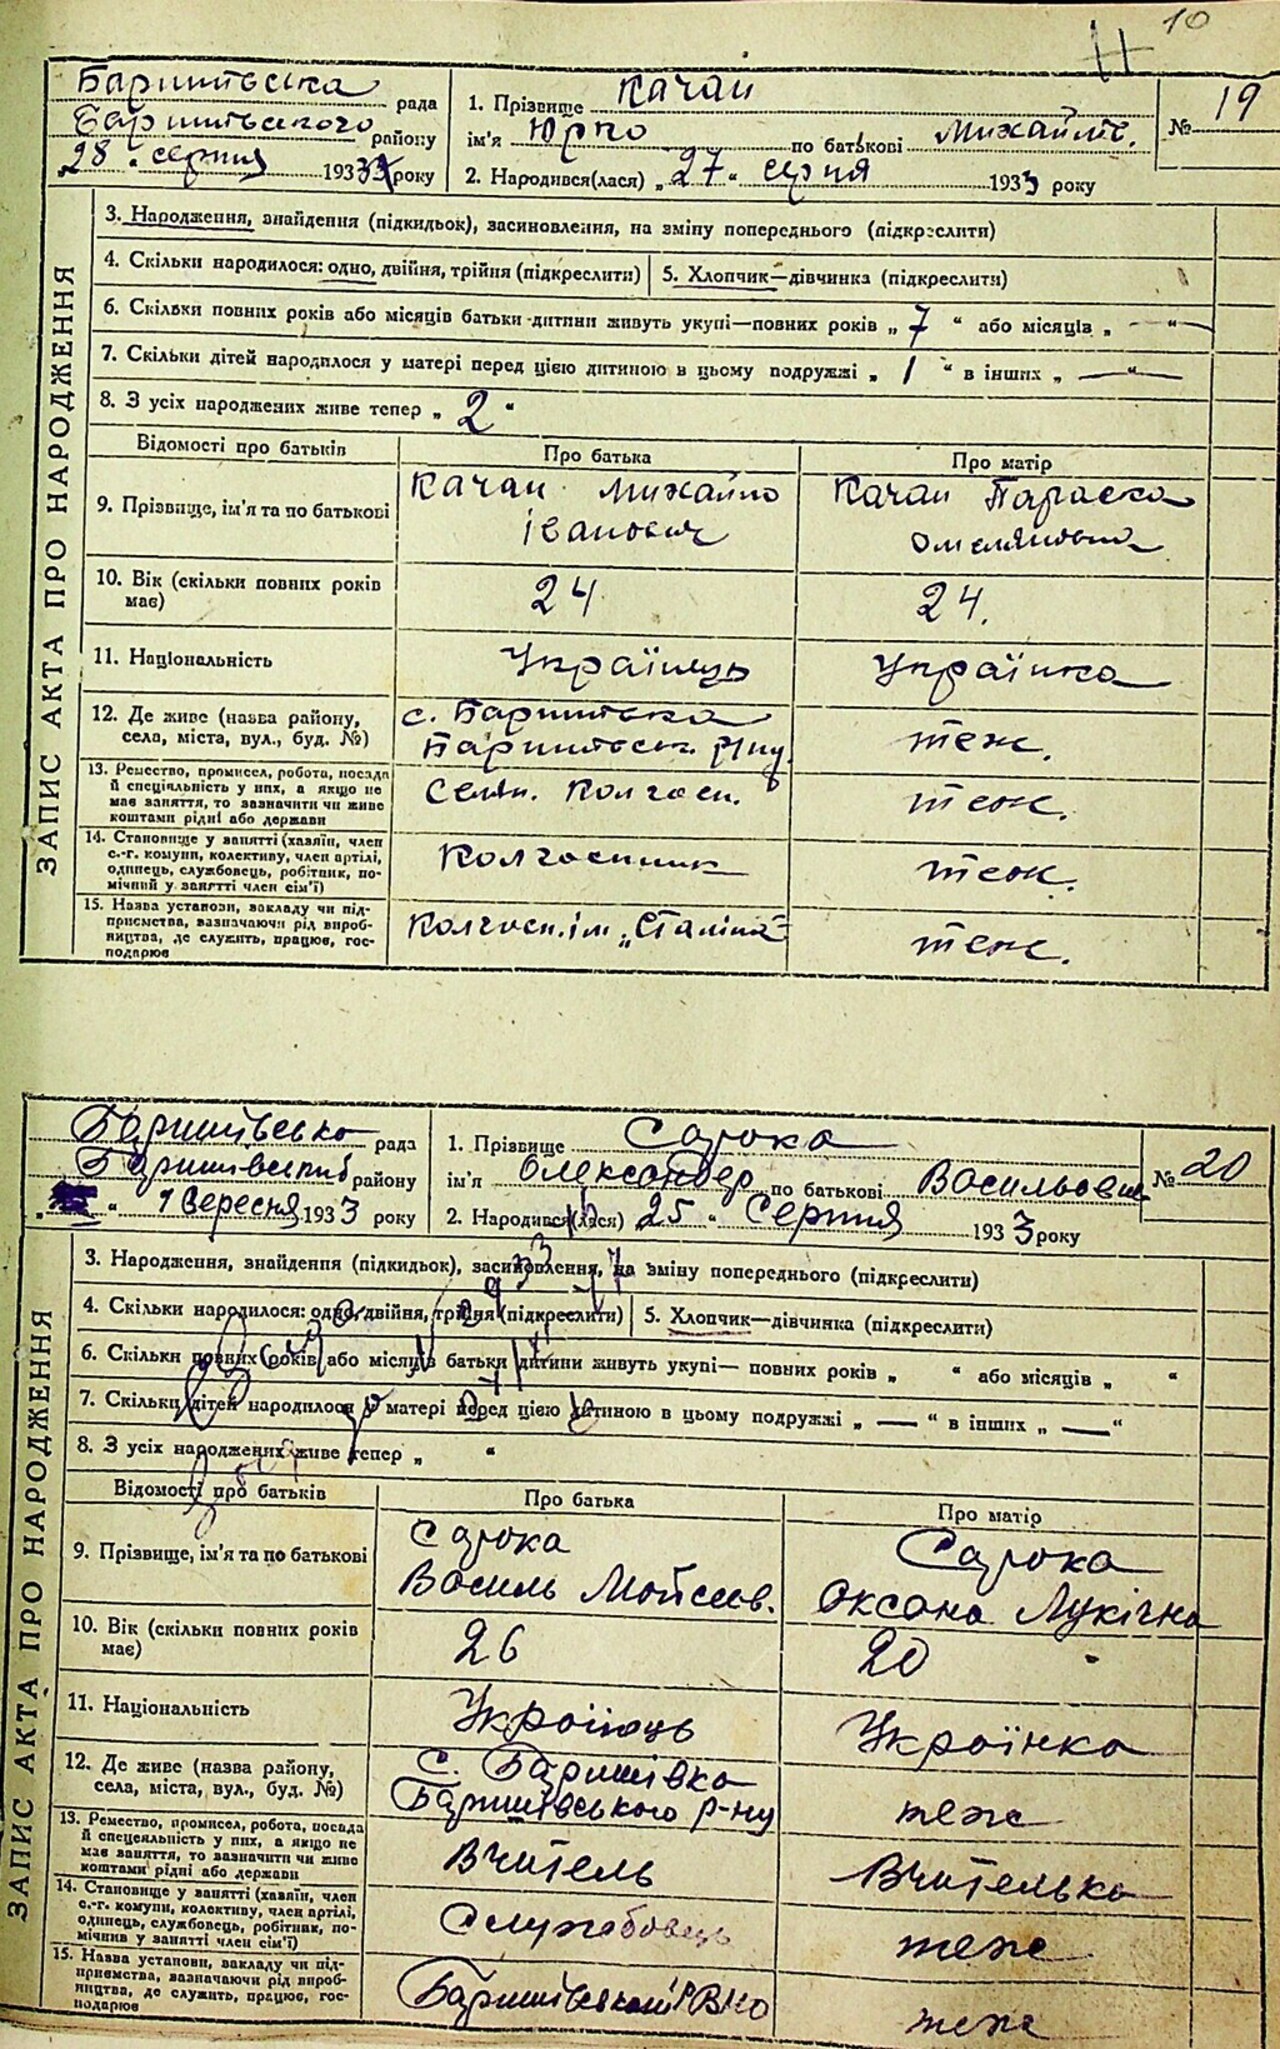 10
Баришівська рада
Баришівського району
„28“ серпня 1933 року
1. Прізвище Качан
ім'я Юрко по батькові Михайлів.
2. Народився(лася) „27“ серпня 1933 року
№ 19
ЗАПИС АКТА ПРО НАРОДЖЕННЯ
3. Народження, знайдення (підкидьок), засиновлення, на зміну попереднього (підкреслити)
4. Скільки народилося: одно, двійня, трійня (підкреслити)
5. Хлопчик—дівчинка (підкреслити)
6. Скільки повних років або місяців батьки дитини живуть укупі—повних років „ 7 “ або місяців „ — “
7. Скільки дітей народилося у матері перед цією дитиною в цьому подружжі „ 1 “ в інших „ — “
8. З усіх народжених живе тепер „ 2 “
Відомості про батьків
Про батька
Про матір
9. Прізвище, ім'я та по батькові
Качан Михайло
Іванович
Качан Параска
Омелянівна
10. Вік (скільки повних років
має)
24
24.
11. Національність
Українець
Українка
12. Де живе (назва району,
села, міста, вул., буд. №)
с. Баришівка
Баришівськ. р-ну
теж.
13. Ремество, промисел, робота, посада
й спеціяльність у них, а якщо не
має заняття, то зазначити чи живе
коштами рідні або держави
Селян. Колгосп.
теж.
14. Становище у занятті (хазяїн, член
с.-г. комуни, колективу, член артілі,
одинець, службовець, робітник, по-
мічний у занятті член сім'ї)
Колгоспник
теж.
15. Назва установи, закладу чи під-
приємства, вазначаючи рід вироб-
ництва, де служить, працює, гос-
подарює
Колгосп. ім. „Сталіна“
теж.
Баришівсько рада
Баришівський району
1 Вересня 1933 року
1. Прізвище Сорока
ім'я Олександер по батькові Васильович
2. Народився(лася) 25 “ Серпня 1933 року
№ 20
ЗАПИС АКТА ПРО НАРОДЖЕННЯ
3. Народження, знайдення (підкидьок), засиновлення, на зміну попереднього (підкреслити)
4. Скільки народилося: одно, двійня, трійня (підкреслити)
5. Хлопчик—дівчинка (підкреслити)
6. Скільки повних років або місяців батьки дитини живуть укупі— повних років „ “ або місяців „ “
7. Скільки дітей народилося у матері перед цією дитиною в цьому подружжі „ — “ в інших „ — “
8. З усіх народжених живе тепер „ “
Відомості про батьків
Про батька
Про матір
9. Прізвище, ім'я та по батькові
Сорока
Василь Мойсеєв.
Сорока
Оксана Лукічна
10. Вік (скільки повних років
має)
26
20
11. Національність
Українець
Українка
12. Де живе (назва району,
села, міста, вул., буд. №)
С. Баришівка
Баришівського р-ну
теже
13. Ремество, промисел, робота, посада
й спецеяльність у них, а якщо не
має заняття, то зазначити чи живе
коштами рідні або держави
Вчитель
Вчителька
14. Становище у занятті (хазяїн, член
с.-г. комуни, колективу, член артілі,
одинець, службовець, робітник, по-
мічнив у занятті член сім'ї)
Службовець
теже
15. Назва установи, закладу чи під-
приємства, вазначаючи рід вироб-
ництва, де служить, працює, гос-
подарює
Баришівський РВНО
теже